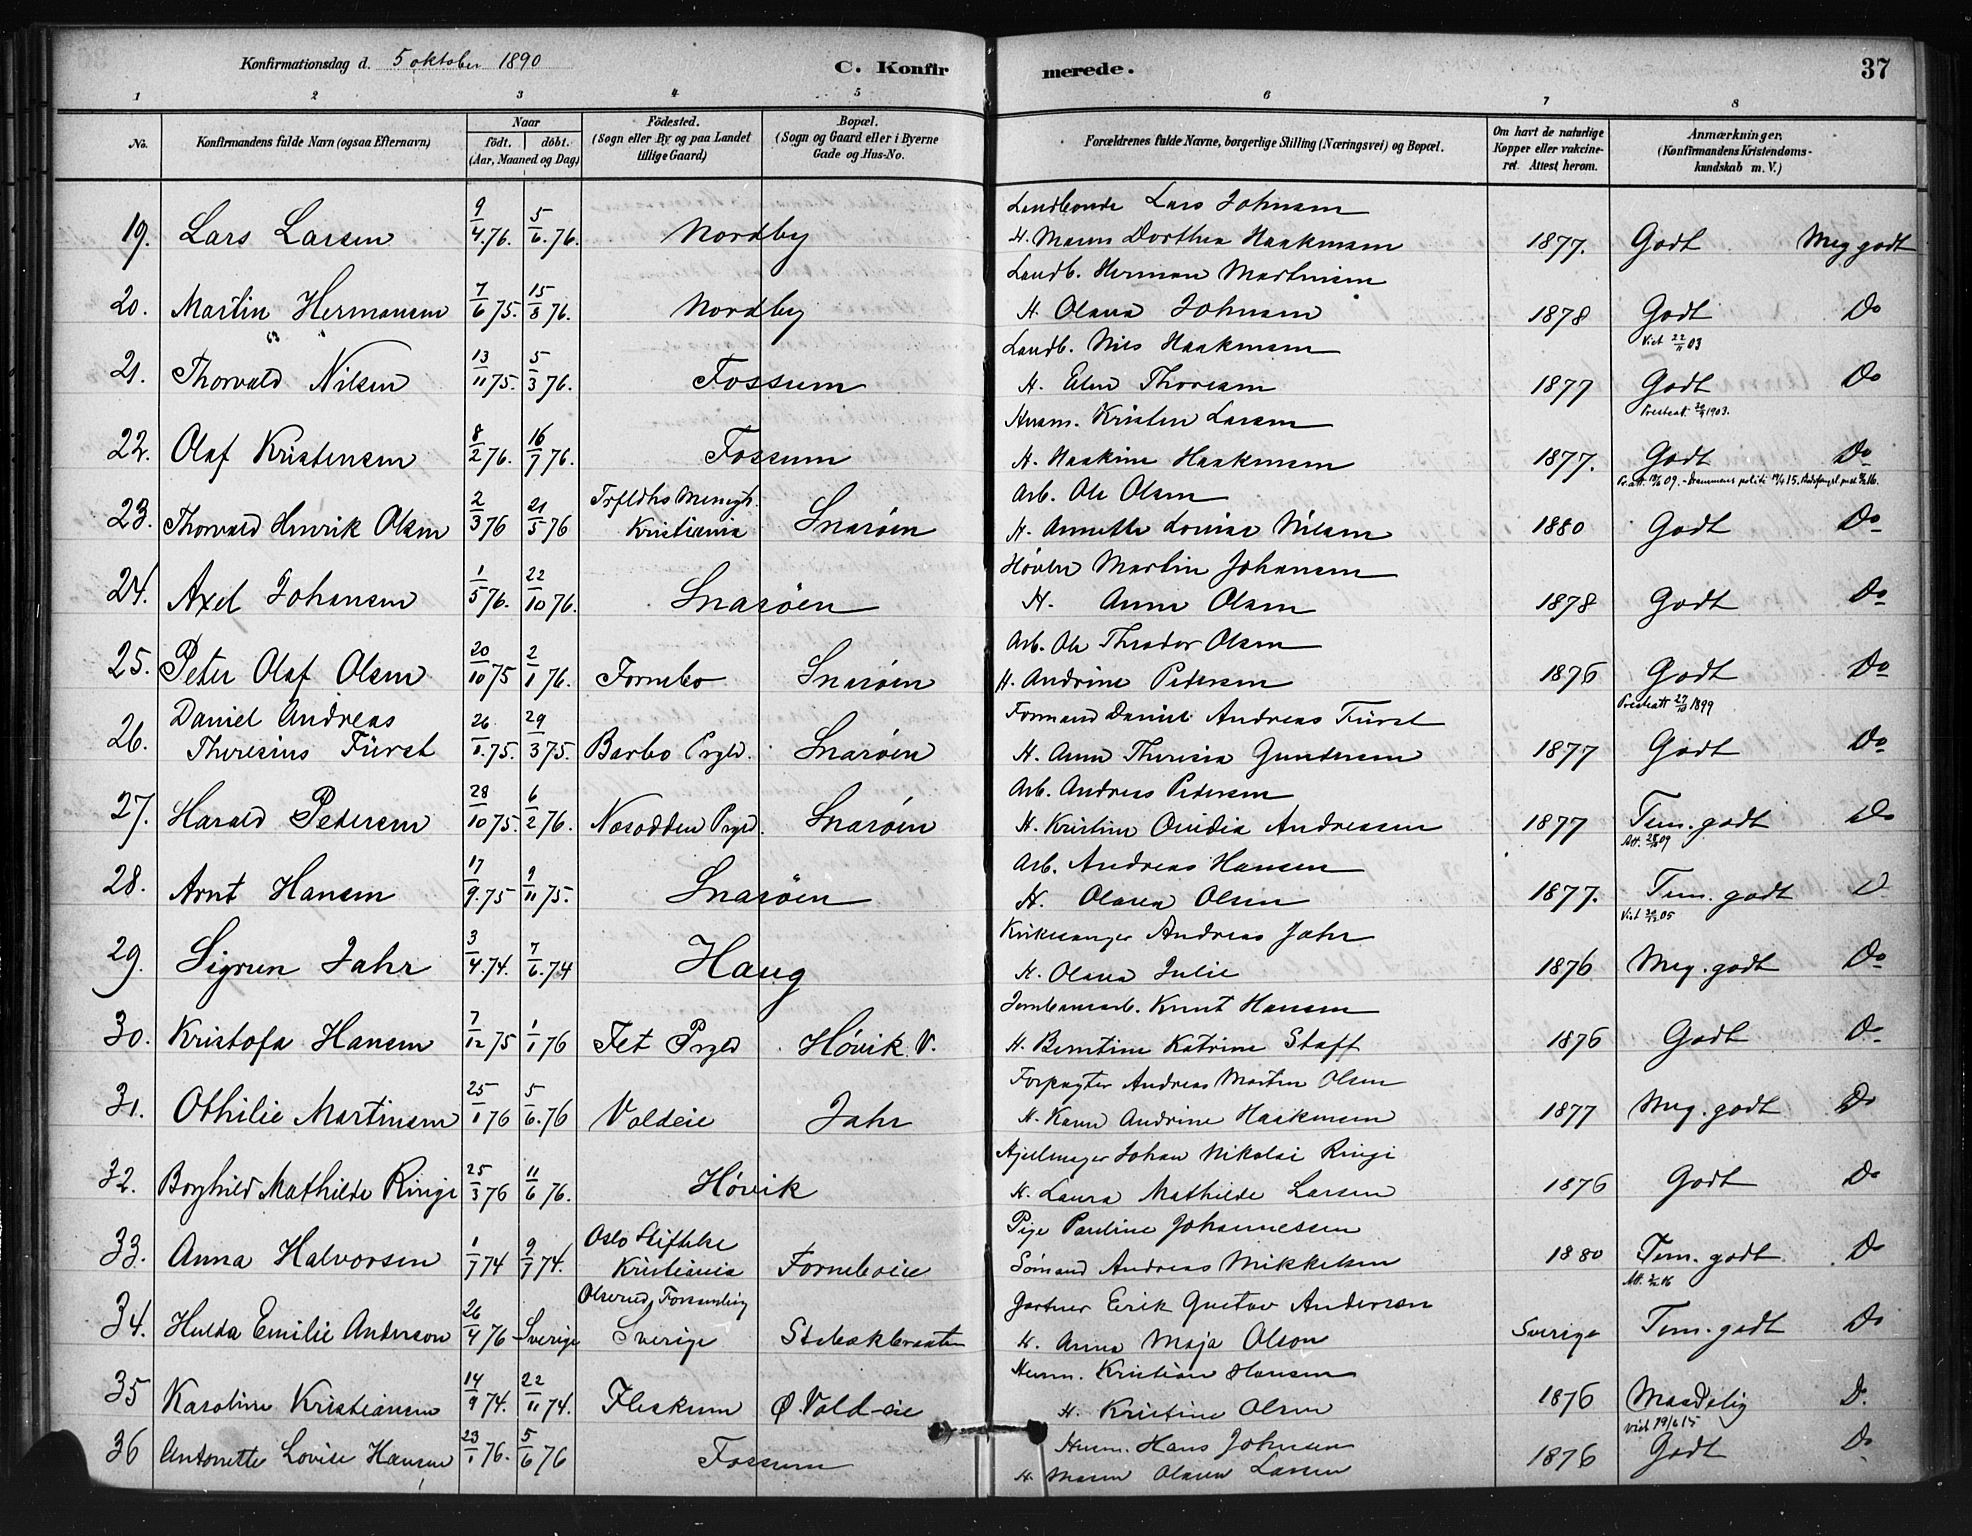 Konfirmationsdag d. 5 oktober 1890
C. Konfirmerede.
37
1 2 3 4 5 6 7 8
No.
Konfirmandens fulde Navn (ogsaa Efternavn)
Naar
födt. döbt.
(Aar, Maaned og Dag)
Födested.
(Sogn eller By og paa Landet
tillige Gaard)
Bopæl.
(Sogn og Gaard eller i Byerne
Gade og Hus-No.
Forældrenes fulde Navne, borgerlige Stilling (Næringsvei) og Bopæl.
Om havt de naturlige
Kopper eller vakcine-
ret. Attest herom.
Anmærkninger.
(Konfirmandens Kristendoms-
kundskab m. V.)
Landbonde Lars Johnsen
19. Lars Larsen 9/4.76. 5/6.76. Nordby H. Maren Dorthea Haakensen 1877. Godt Meg godt
Landb. Herman Martinsen
20. Martin Hermansen 7/6 75. 15/3 76. Nordby H. Olava Johnsen 1878 Godt Do
Viet 22/11 03
Landb. Nils Haakensen
21. Thorvald Nilsen 13/11 75. 5/3 76. Fossum H. Elen Thoresen 1877 Godt Do
Husm. Kristen Larsen
22. Olaf Kristensen 8/2 76. 16/7 76. Fossum H. Haakine Haakensen 1877. Godt Do
Arb. Ole Olsen
23. Thorvald Henrik Olsen 2/3 76 21/5 76 Trfldhs Menigh. Kristiania Snarøen H. Annette Lovise Nilsen 1880 Godt Do
Høvler Martin Johansen
24. Axel Johansen 1/5 76. 22/10 76. Snarøen H. Anne Olsen 1878 Godt Do
Arb. Ole Theodor Olsen
25. Peter Olaf Olsen 20/10 75 2/1 76. Fornebo Snarøen H. Andrine Pedersen 1876 Godt Do
Formand Daniel Andreas Fürst
26. Daniel Andreas Theresius Fürst 26/1.75. 29/3 75. Barbo Prgld. Snarøen H. Anne Theresia Gundersen 1877 Godt Do
Arb. Andreas Pedersen
27. Harald Pedersen 28/10 75. 6/2 76. Nesodden Prgld. Snarøen H. Kristine Ovidia Andressen 1877 Tem. godt Do
Arb. Andreas Hansen
28. Arnt Hansen 17/9.75 9/11 75. Snarøen H. Olava Olsen 1877. Tem. godt
Kirkesanger Andreas Jahr
29. Sigrun Jahr 3/4.74. 7/6.74 Haug H. Olava Julie 1876 Meg. godt Do
Jernbanearb. Knut Hansen
30. Kristofa Hansen 7/12 75 1/1 76 Fet Prgld Høvik V. H. Berntine Katrine Staff 1876 Godt Do
Forpagter Andreas Martin Olsen
31. Othilie Martinsen 25/1 76 5/6.76 Voldeie Jahr H. Karen Andrine Haakensen 1877 Meg. godt Do
Hjulmager Johan Nikolai Ringi
32. Borghild Mathilde Ringi 25/3 76 11/6 76. Høvik H. Laura Mathilde Larsen 1876 Godt Do
Pige Pauline Johannessen
33. Anna Halvorsen 1/7 74 9/7 74. Oslo Stiftelse Kristiania Forneboeie Sømand Andreas Mikkelsen 1880 Tem. godt Do
Gartner Erik Gustav Anderson
34. Hulda Emilie Anderson 26/4 76 Sverige Sverige Stabakbraaten H. Anna Maja Olson Sverige Tem. godt Do
Husm. Kristian Hansen
35 Karoline Kristiansen 14/9 74. 22/11 74. Fleskum Ø. Vold-eie H. Kristine Olsen 1876 Maadelig Do
Husm. Hans Johnsen
36 Antonette Lovise Hansen 23/1 76. 5/6 76 Fossum H. Maren Olava Larsen 1876 Godt Do